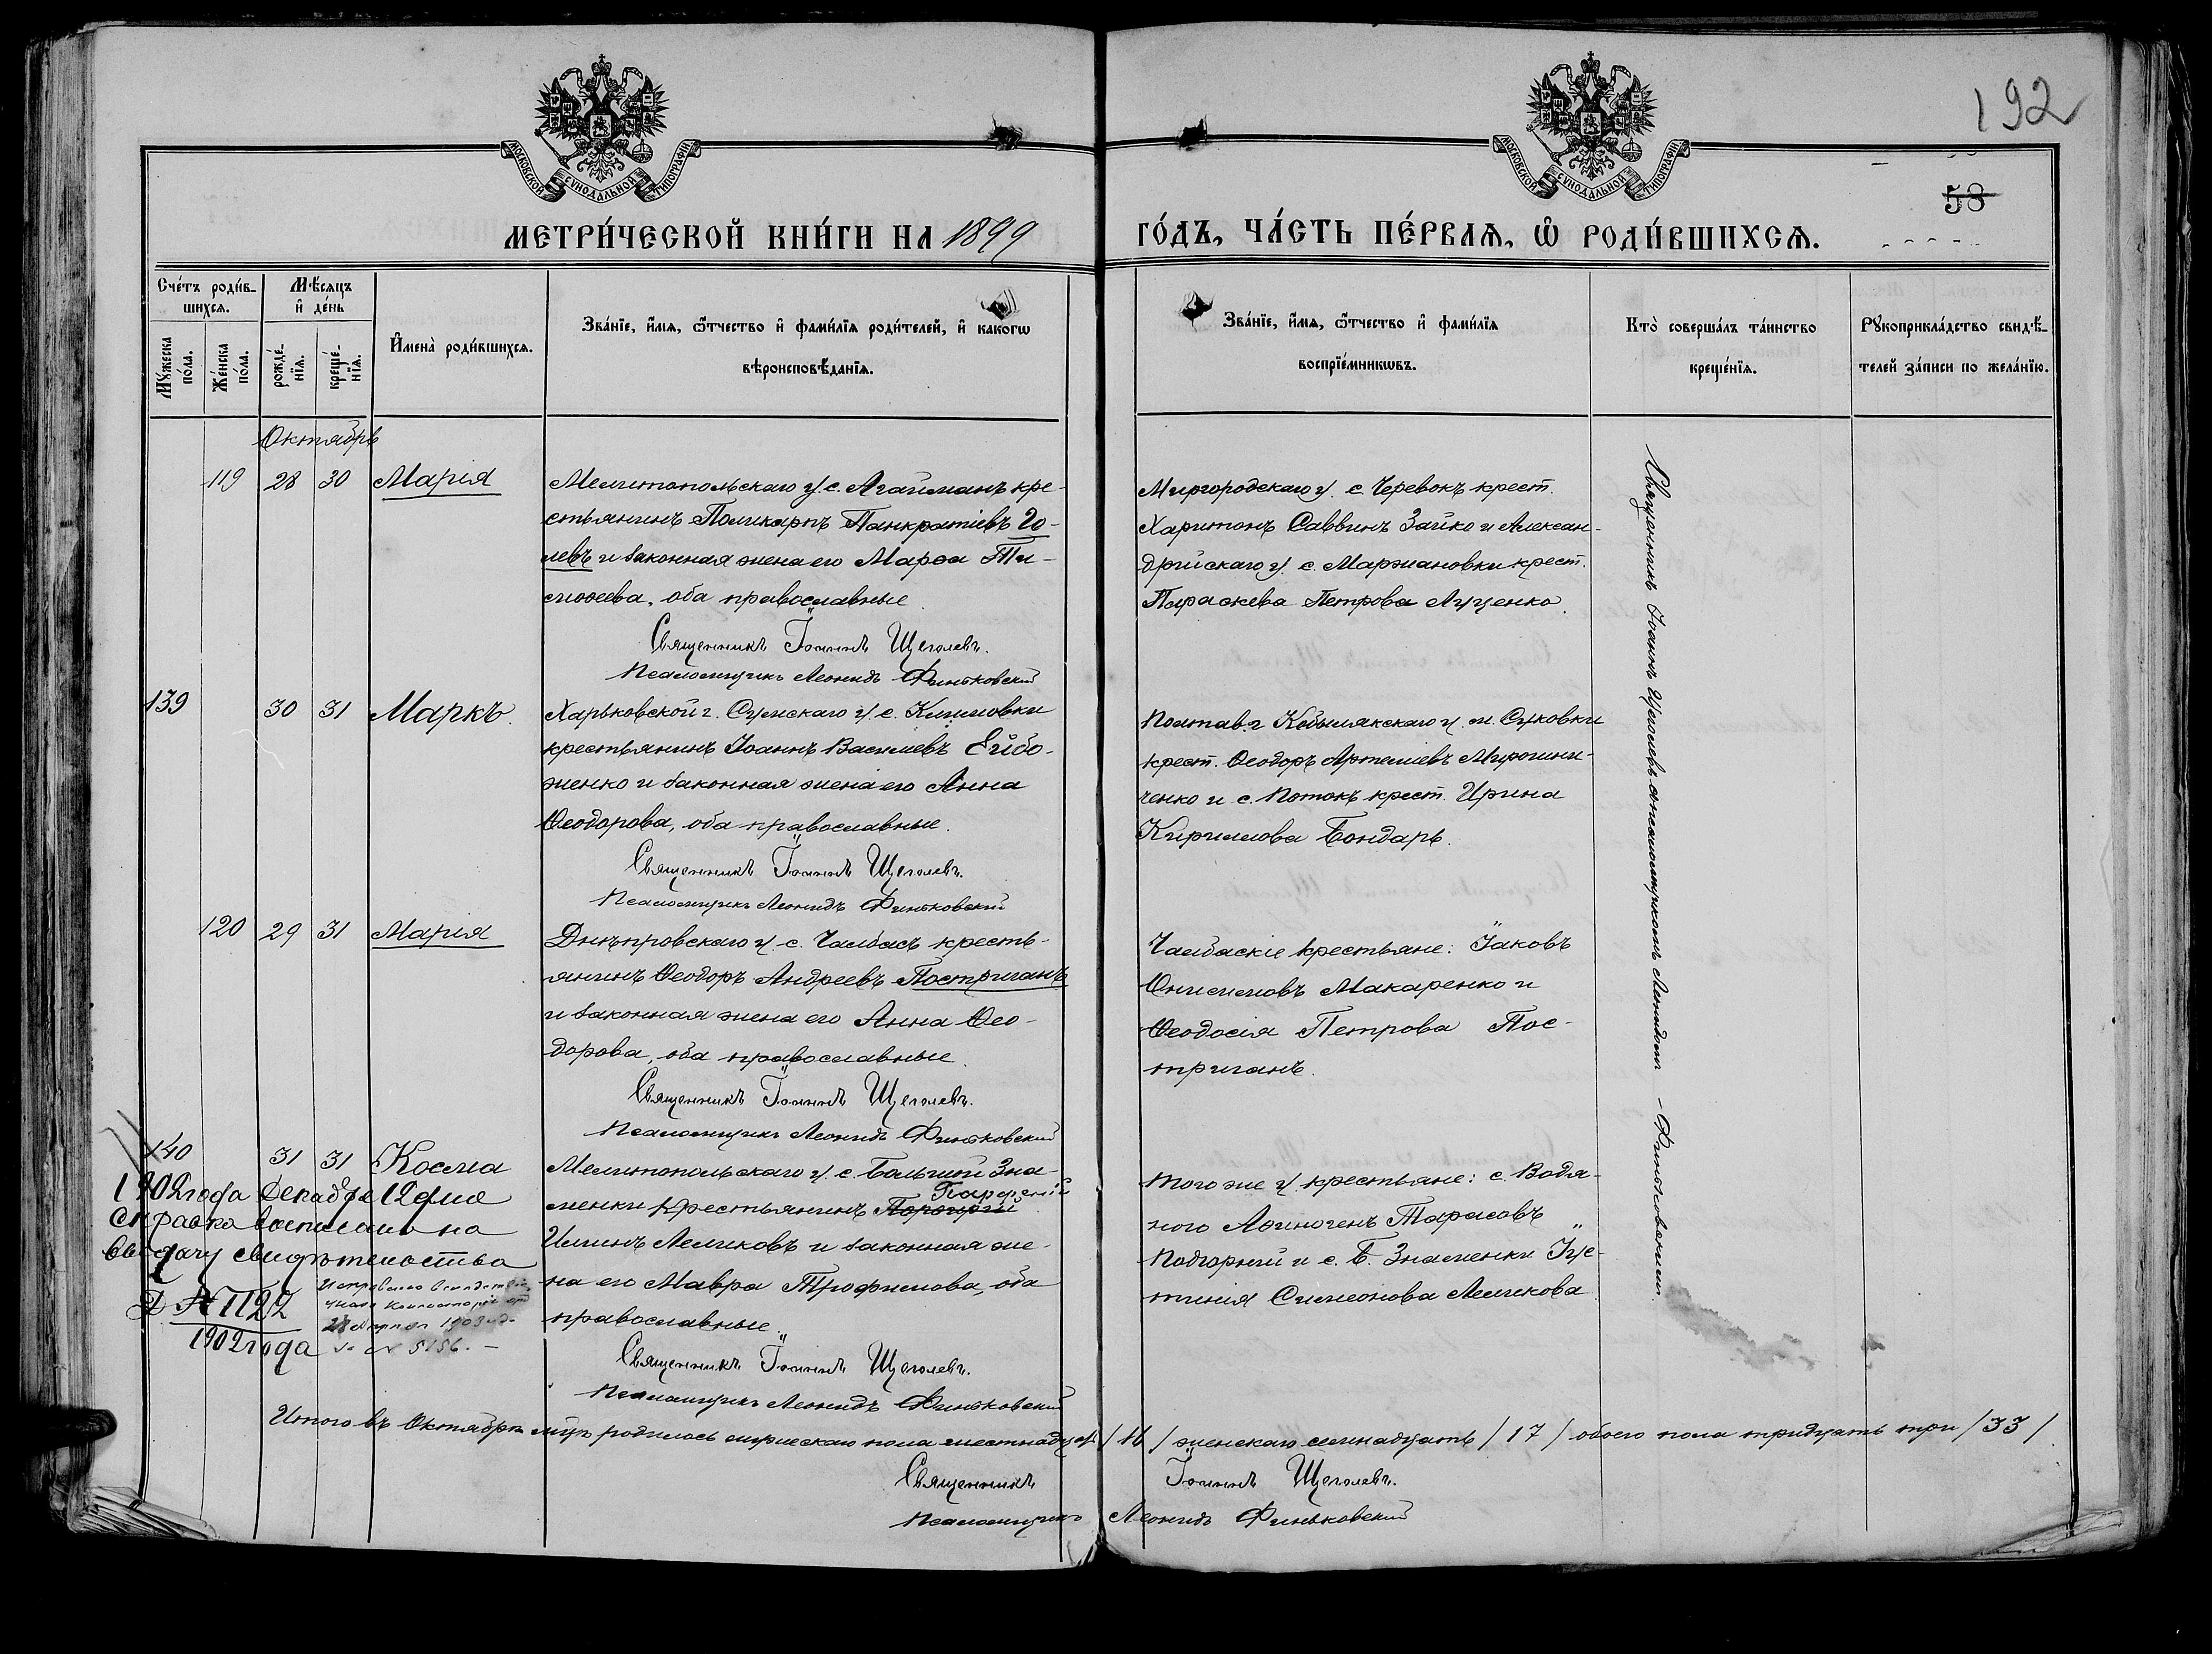 192
58
МОСКОВСКОЙ СѴНОДАЛЬНОЙ ТИПОГРАФІИ
МОСКОВСКОЙ СѴНОДАЛЬНОЙ ТИПОГРАФІИ
МЕТРИ́ЧЕСКОЙ КНИ́ГИ НА 1899
ГО́ДЪ, ЧА́СТЬ ПЕ́РВАѦ, Ѡ҆ РОДИ́ВШИХСѦ.
Сче́тъ роди́в-
шихсѧ.
Мꙋ́жеска по́ла.
Же́нска по́ла.
Мѣ́сѧцъ
и҆ де́нь
рожде́-
нїѧ.
креще́-
нїѧ.
И҆мена̀ роди́вшихсѧ.
Зва́нїе, и҆́мѧ, ѻ҆́тчество и҆ фами́лїѧ роди́телей, и҆ како́гѡ
вѣроисповѣ́данїѧ.
Зва́нїе, и҆́мѧ, ѻ҆́тчество и҆ фами́лїѧ
воспрїе́мникѡвъ.
Кто̀ соверша́лъ та́инство
креще́нїѧ.
Рꙋкоприкла́дство свидѣ́-
телей за́писи по жела́нїю.
Октябрь
119 28 30 Марія
Мелитопольскаго у. с. Агайманъ кре-
стьянинъ Поликарпъ Панкратіевъ Го-
левъ и законная жена его Марѳа Ти-
моѳеева, оба православные.
Священникъ Іоаннъ Щеголевъ.
Псаломщикъ Леонидъ Финьковскій
Миргородскаго у. с. Черевокъ крест.
Харитонъ Саввинъ Зайко и Алексан-
дрійскаго у. с. Маржановки крест.
Параскева Петрова Луценко.
139 30 31 Маркъ.
Харьковской г. Сумскаго у. с. Климовки
крестьянинъ Іоаннъ Василіевъ Ейбо-
женко и законная жена его Анна
Ѳеодорова, оба православные.
Священникъ Іоаннъ Щеголевъ.
Псаломщикъ Леонидъ Финьковскій
Полтав. г. Кобылякскаго у. м. Суковки
крест. Ѳеодоръ Артеміевъ Мирошни-
ченко и с. Потокъ крест. Ирина
Кириллова Бондарь.
120 29 31 Марія
Днѣпровскаго у. с. Чалбасъ кресть-
янинъ Ѳеодоръ Андреевъ Постриганъ
и законная жена его Анна Ѳео-
дорова, оба православные.
Священникъ Іоаннъ Щеголевъ.
Псаломщикъ Леонидъ Финьковскій
Чалбаскіе крестьяне: Іаковъ
Онисимовъ Макаренко и
Ѳеодосія Петрова Пос-
триганъ.
140 31 31 Косма
Мелитопольскаго у. с. Большой Зна-
Парфеній
менки крестьянинъ Порфирій
Ильинъ Лемиковъ и законная же-
на его Мавра Трофимова, оба
православные.
Священникъ Іоаннъ Щеголевъ.
Псаломщикъ Леонидъ Финьковскій
того же у. крестьяне: с. Водя-
ного Аѳиногенъ Тарасовъ
Подгорный и с. Б. Знаменки Іус-
тинія Симеонова Лемикова.
1902 года Декабря 12 дня
Справка выписана на
выдачу свидѣтельства
Д. № 1122
1902 года
1903
за № 5156. –
Священникъ Іоаннъ Щеголевъ съ псаломщикомъ Леонидомъ – Финьковскимъ.
Итого въ Октябрѣ мцѣ родилось мужескаго пола шестнадцать /16/ женскаго семнадцать /17/ обоего пола тридцать три /33/
Священникъ Іоаннъ Щеголевъ.
Псаломщикъ Леонидъ Финьковскій